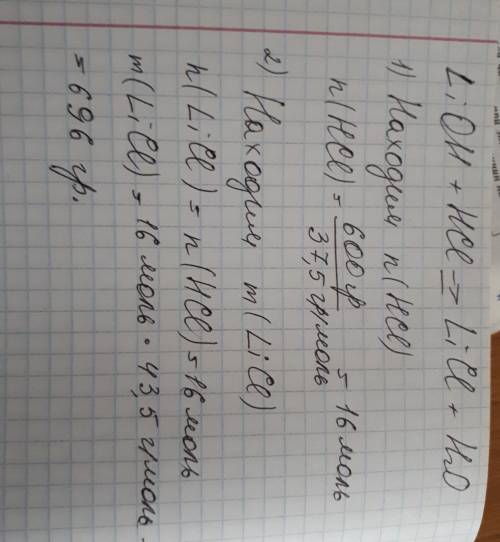 LiOH + HCl => LiCl + H2O
1) Находим n(HCl)
n(HCl) = 600гр / 37,5 гр/моль = 16 моль
2) Находим m(LiCl)
n(LiCl) = n(HCl) = 16 моль
m(LiCl) = 16 моль · 43,5 гр/моль =
= 696 гр.